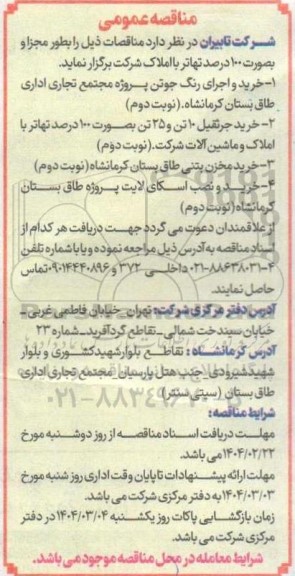 مناقصه عمومی
شرکت تابیران در نظر دارد مناقصات ذیل را بطور مجزا و
بصورت ۱۰۰ درصد تهاتر با املاک شرکت برگزار نماید.
۱-خرید و اجرای رنگ جوتن پروژه مجتمع تجاری اداری
طاق بستان کرمانشاه. (نوبت دوم)
۲-خرید جرثقیل ۱۰ تن و ۲۵ تن بصورت ۱۰۰ درصد تهاتر با
املاک و ماشین آلات شرکت. (نوبت دوم)
۳-خرید مخزن بتنی طاق بستان کرمانشاه (نوبت دوم)
۴-خرید و نصب اسکای لایت پروژه طاق بستان
کرمانشاه (نوبت دوم)
از علاقمندان دعوت می گردد جهت دریافت هر کدام از
اسناد مناقصه به آدرس ذیل مراجعه نموده و یا با شماره تلفن
۰۲۱-۸۸۶۳۸۰۳۱-۴ داخلی ۳۷۲ و ۰۹۰۱۴۴۴۰۸۹۶ تماس
حاصل نمایند.
آدرس دفتر مرکزی شرکت: تهران_خیابان فاطمی غربی_
خیابان سیندخت شمالی_تقاطع گردآفرید_شماره ۲۳
آدرس کرمانشاه : تقاطع بلوار شهید کشوری و بلوار
شهید شیرودی_جنب هتل پارسیان_مجتمع تجاری اداری
طاق بستان (سیتی سنتر)
۰۲۱-۸۸۳۴۹۶۷۰
شرایط مناقصه:
مهلت دریافت اسناد مناقصه از روز دوشنبه مورخ
۱۴۰۴/۰۲/۲۲ می باشد.
مهلت ارائه پیشنهادات تا پایان وقت اداری روز شنبه مورخ
۱۴۰۴/۰۳/۰۳ به دفتر مرکزی شرکت می باشد.
زمان بازگشایی پاکات روز یکشنبه ۱۴۰۴/۰۳/۰۴ در دفتر
مرکزی شرکت می باشد.
شرایط معامله در محل مناقصه موجود می باشد.